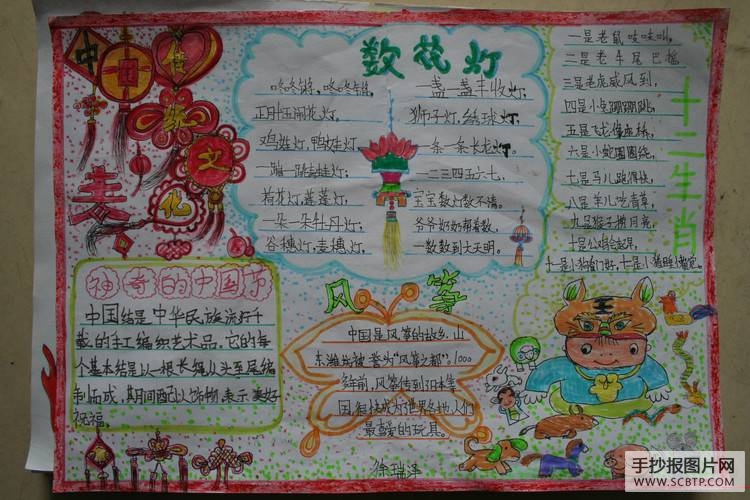 中国传统文化
数花灯
咚咚锵,咚咚锵,
正月十五闹花灯。
鸡娃灯,鸭娃灯,
一蹦一跳蛙娃灯;
荷花灯,莲莲灯,
一朵一朵牡丹灯;
谷穗灯,麦穗灯,
一盏一盏丰收灯;
狮子灯,绣球灯,
一条一条长龙灯。
一二三四五六七,
宝宝数灯数不清。
爷爷奶奶帮着数,
一数数到大天明。
十二生肖
一是老鼠吱吱叫,
二是老牛尾巴摇,
三是老虎威风到,
四是小兔蹦蹦跳,
五是飞龙像座桥,
六是小蛇圈圈绕,
七是马儿跑得快,
八是羊儿吃青草,
九是猴子捞月亮,
十是公鸡合起早,
十一是小狗看门好,十二是小猪睡懒觉。
神奇的中国节
中国结是中华民族流行千
载的手工编织艺术品,它的每
个基本结是以一根长绳从头至尾编
制而成,期间配以饰物,表示美好
祝福。
风筝
中国是风筝的故乡,山
东潍坊被誉为“风筝之都”。1000
年前,风筝传到日本等
国,很快成为世界各地人们
最喜爱的玩具。
徐瑞泽
手抄报图片网
WWW.SCBTP.COM